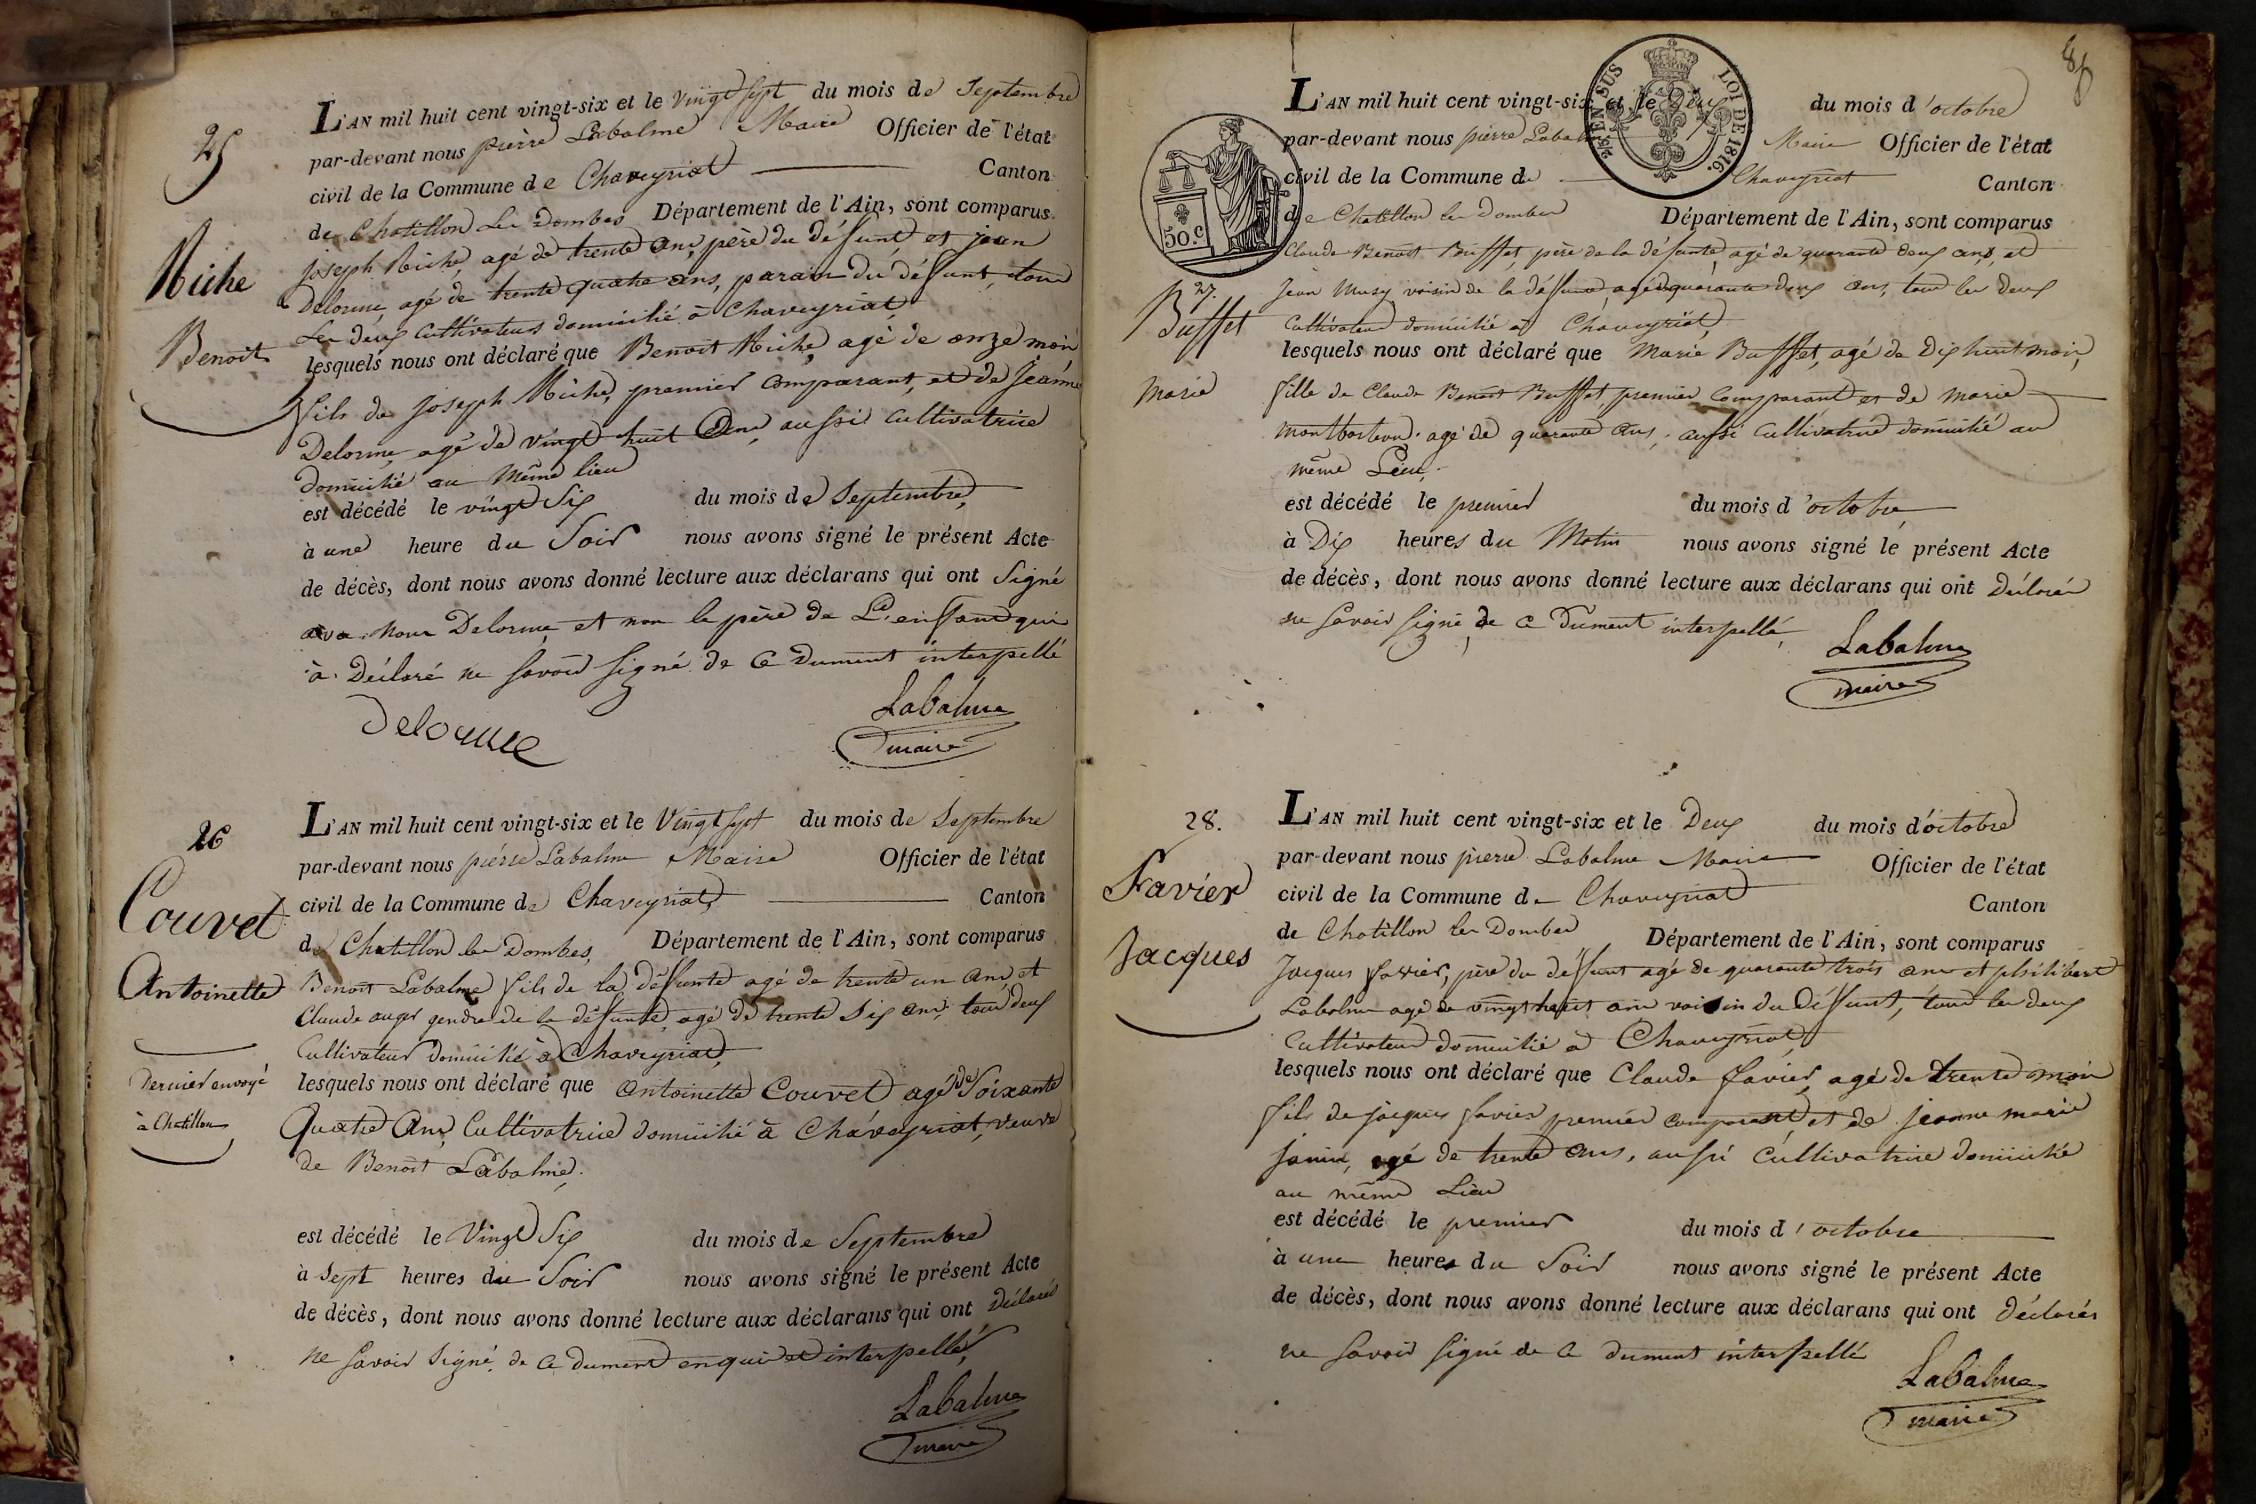 25
Miche
Benoit
L'AN mil huit cent vingt-six et le vingt sept du mois de Septembre
par-devant nous pierre Labalme Maire Officier de l'état
civil de la Commune de Chaveyriat Canton
de Chatillon les Dombes Département de l'Ain, sont comparus
joseph Miche, agé de trente ans, père du défunt et jean
Delorme, agé de trente quatre ans, parain du défunt, tous
Les deux Cultivateurs domicilié à Chaveyriat,
lesquels nous ont déclaré que Benoit Miche, agé de onze mois
fils de joseph Miche, premier comparant, et de jeanne
Delorme, agé de vingt huit Ans, aussi cultivatrice
domicilié au même lieu
est décédé le vingt Six du mois de Septembre,
à une heure du Soir nous avons signé le présent Acte
de décès, dont nous avons donné lecture aux déclarans qui ont Signé
avec nous Delorme, et non le père de L'enfant qui
à Déclaré ne savoir signé de ce dument interpellé
Delorme
Labalme
maire
26
Couvet
Antoinette
Dernier envoyé
à Chatillon
L'AN mil huit cent vingt-six et le Vingt sept du mois de Septembre
par-devant nous pierre Labalme Maire Officier de l'état
civil de la Commune de Chaveyriat, Canton
de Chatillon les Dombes, Département de l'Ain, sont comparus
Benoit Labalme fils de la défunte agé de trente un ans, et
Claude auger gendre de la défunte, agé de trente Six ans, tous deux
Cultivateurs domicilié à Chaveyriat,
lesquels nous ont déclaré que antoinette Couvet agé de Soixante
Quatre Ans, Cultivatrice domicilié à Chaveyriat, veuve
de Benoit Labalme.
est décédé le Vingt Six du mois de Septembre
à Sept heures du Soir nous avons signé le présent Acte
de décès, dont nous avons donné lecture aux déclarans qui ont Déclarés
ne savoir signé, de ce dument enquit et interpellé,
Labalme
maire
LOI DE 1816.
50.c
27.
Buffet
marie
L'AN mil huit cent vingt-six et le Deux du mois d'octobre
par-devant nous pierre Labalme Maire Officier de l'état
civil de la Commune de Chaveyriat Canton
de Chatillon les Dombes Département de l'Ain, sont comparus
Claude Benoit Buffet, père de la défunte, agé de quarante deux ans, et
Jean Musy voisin de la défunte, agé de quarante deux ans, tous les deux
Cultivateurs domicilié à Chaveyriat,
lesquels nous ont déclaré que Marie Buffet, agé de Dix huit mois,
fille de Claude Benoit Buffet, premier Comparant et de marie
agé de quarante ans, aussi Cultivatrice domicilié au
même Lieu,
est décédé le premier du mois d'octobre
à Dix heures du Matin nous avons signé le présent Acte
de décès, dont nous avons donné lecture aux déclarans qui ont Déclarés
ne savoir signé, de ce Dument interpellé,
Labalme
maire
28.
Favier
Jacques
L'AN mil huit cent vingt-six et le Deux du mois d'octobre
par-devant nous pierre Labalme Maire Officier de l'état
civil de la Commune de Chaveyriat Canton
de Chatillon les Dombes Département de l'Ain, sont comparus
Jacques favier, père du défunt agé de quarante trois ans et philibert
Labalme agé de vingt huit ans voisin du Défunt, tous les deux
Cultivateurs domicilié à Chaveyriat,
lesquels nous ont déclaré que Claude favier, agé de trente mois
fils de jacques favier premier comparant, et de jeanne marie
janin, agé de trente ans, aussi Cultivatrice domicilié
au même Lieu
est décédé le premier du mois d'octobre
à une heures du Soir nous avons signé le présent Acte
de décès, dont nous avons donné lecture aux déclarans qui ont déclarés
ne savoir signé de ce dument interpellé
Labalme
maire